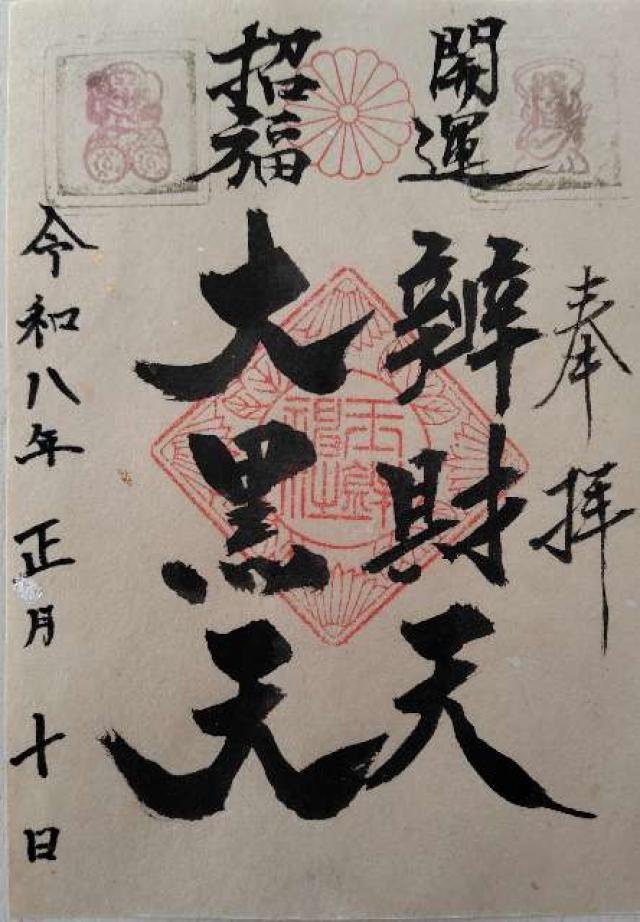 奉拝
開運
辨財天
招福
大黒天
令和八年正月十日